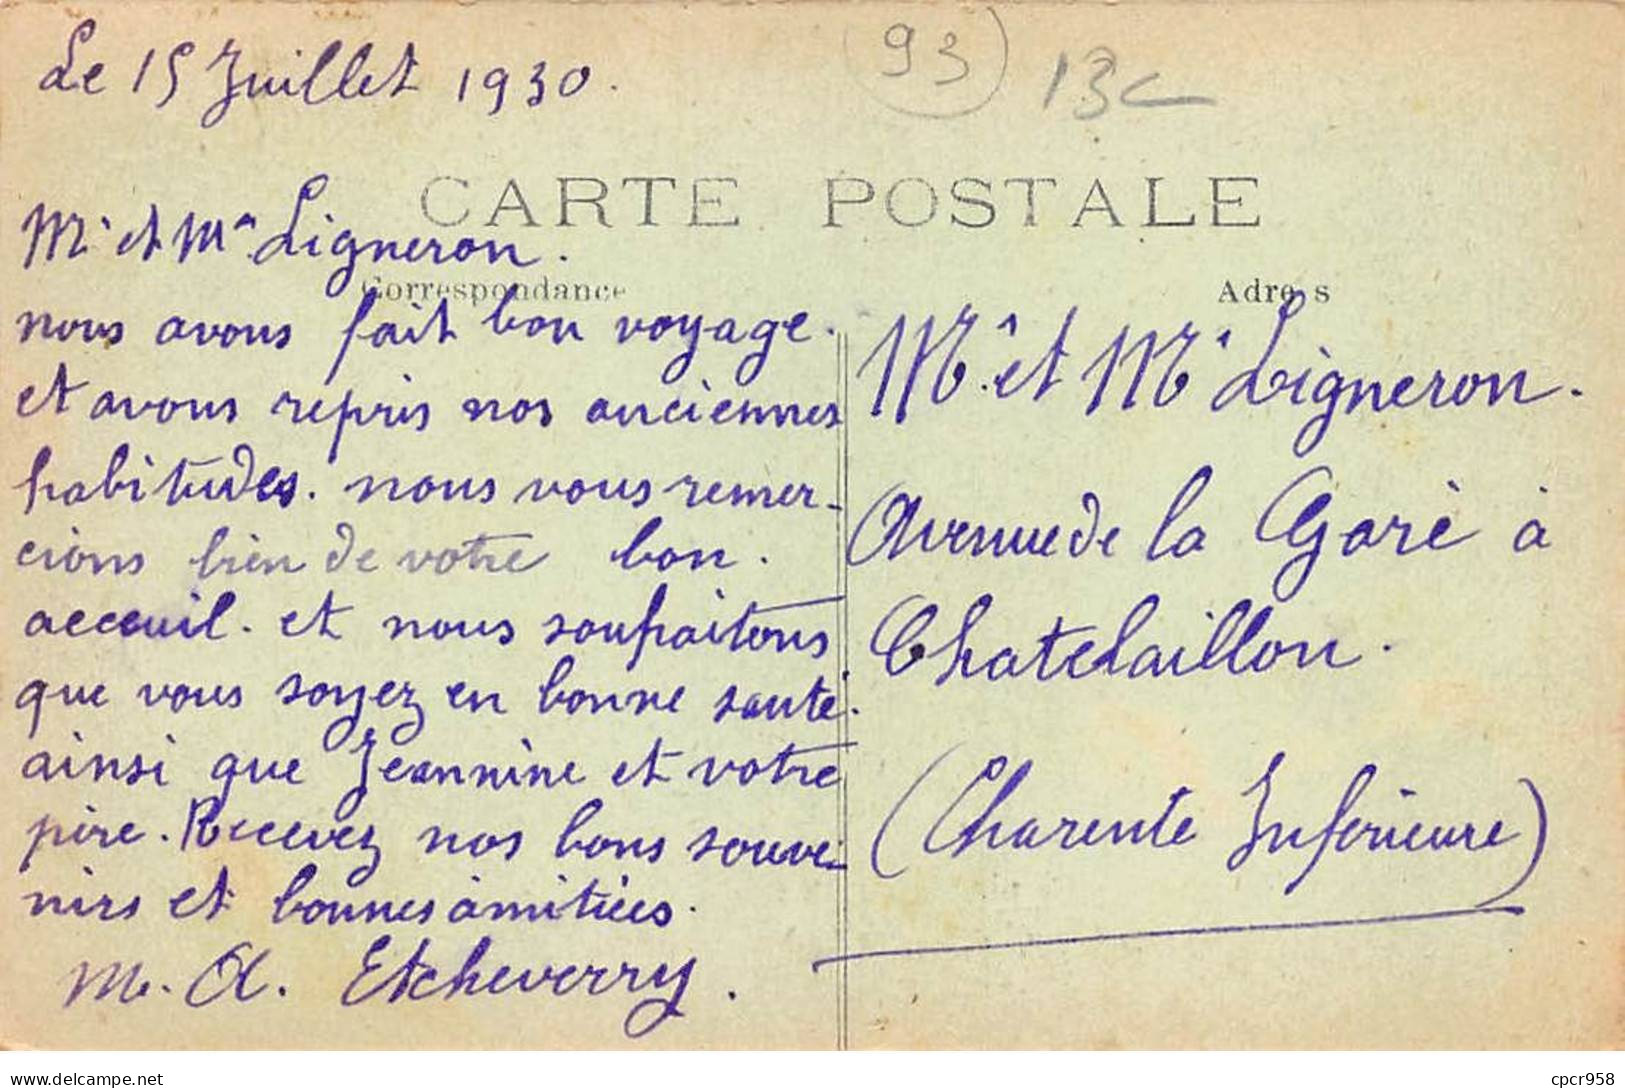 Le 15 Juillet 1930.
93
13c
CARTE POSTALE
Mr et Me Ligneron.
Correspondance
nous avons fait bon voyage.
et avons repris nos anciennes
habitudes. nous vous remer-
cions bien de votre bon.
acceuil. et nous souhaitons
que vous soyez en bonne santé.
ainsi que Jeannine et votre
père. Recevez nos bons souve-
nirs et bonnes amitiées.
M. A. Etcheverry.
Adress
Mr et Me Ligneron.
Avenue de la Gare à
Chatelaillon.
(Charente Inférieure)
delcampe.net
cpcr958